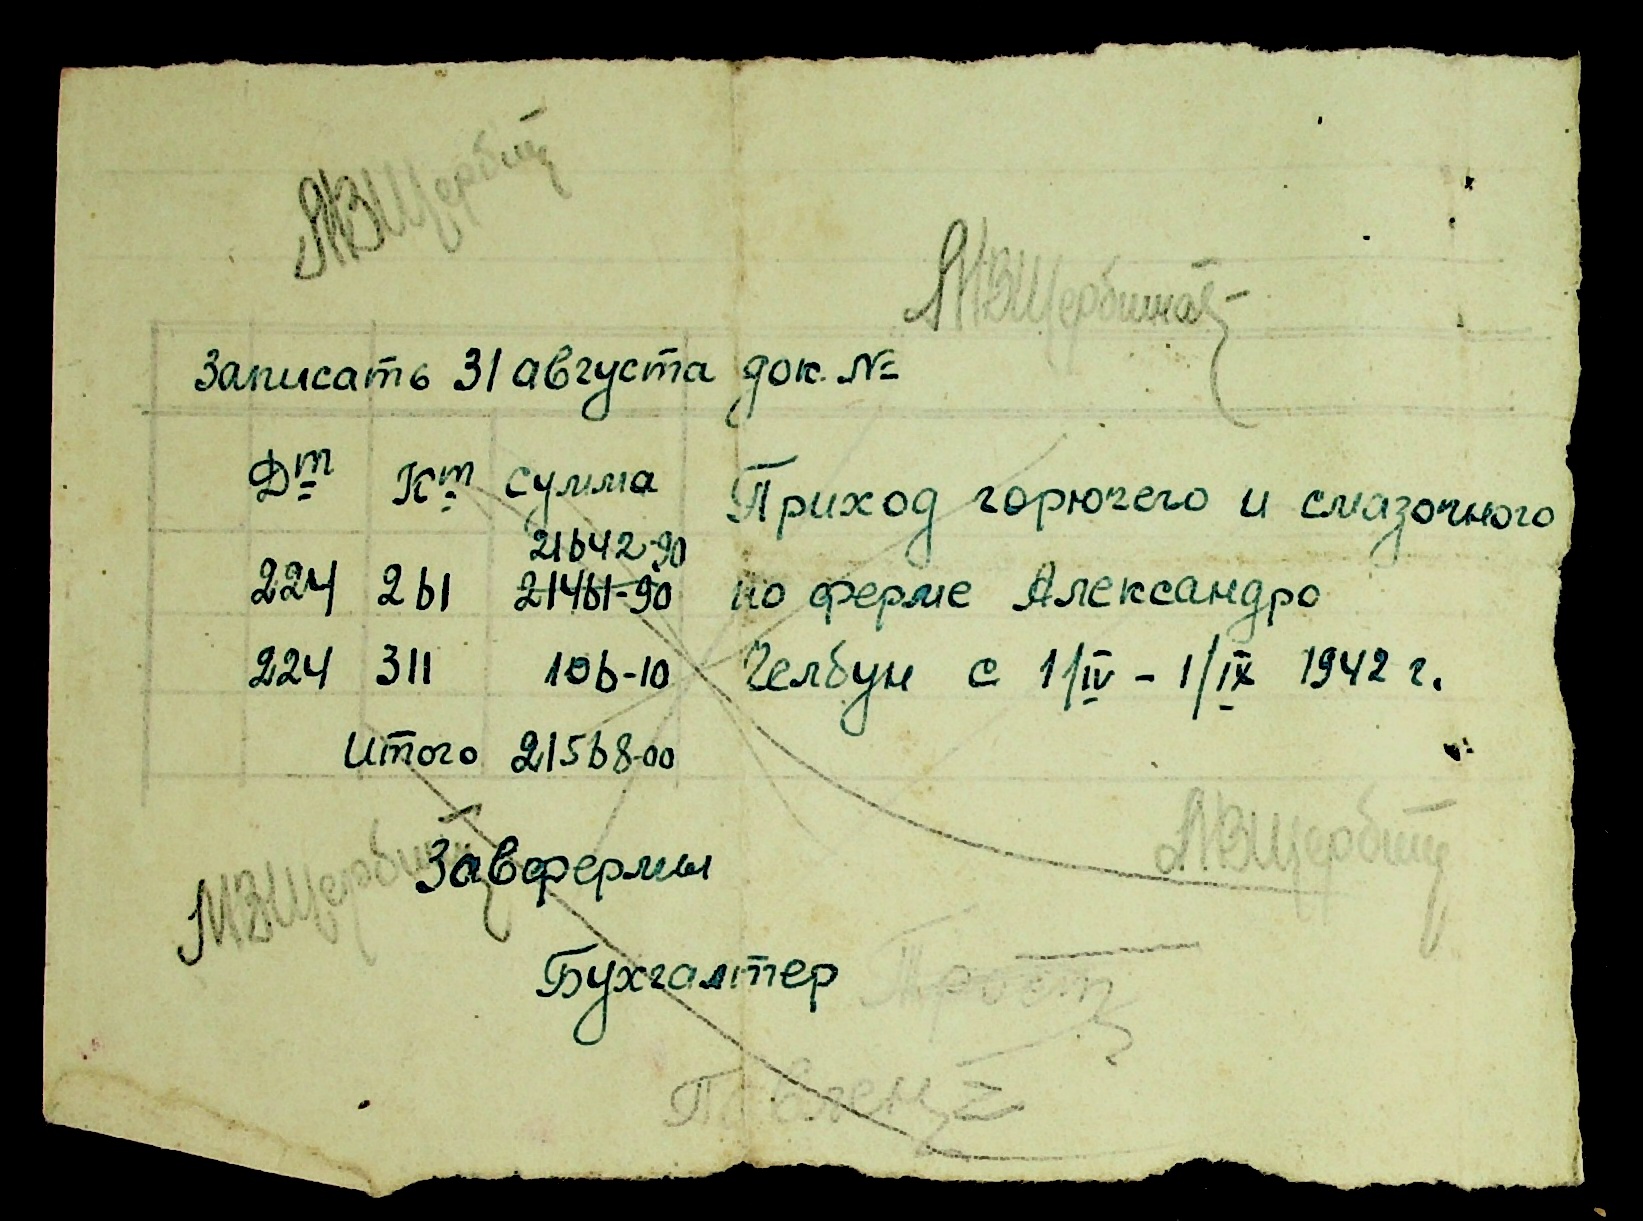 МВЩербин
МВЩербина
Записать 31 августа док. №
Дт Кт сумма Приход горючего и смазочного
21642-90
224 261 21461-90 по ферме Александро
224 311 106-10 Челбун с 1/IV - 1/IX 1942 г.
Итого 21568-00
МВЩербин
МВЩербин
Завфермы
Бухгалтер